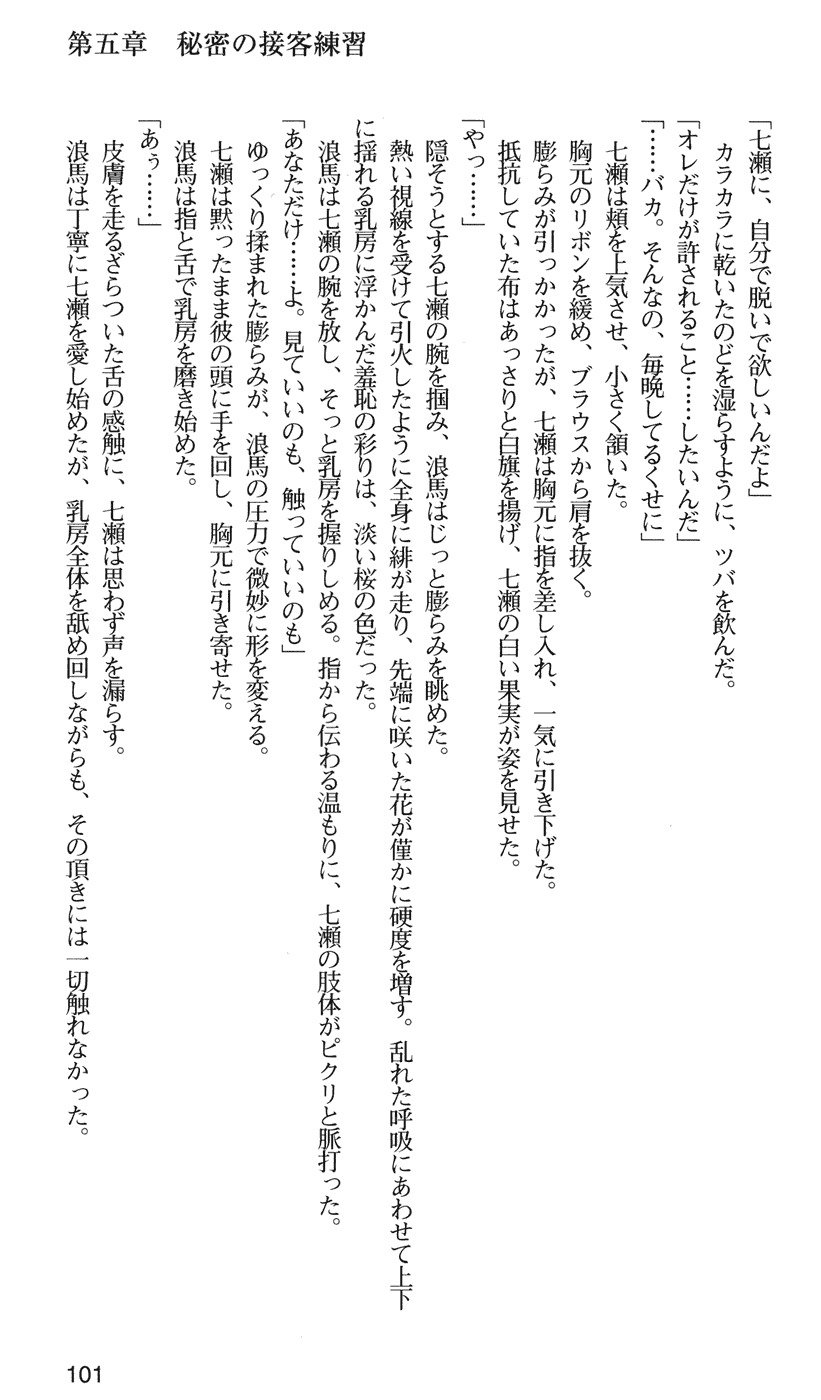 第五章　秘密の接客練習
「七瀬に、自分で脱いで欲しいんだよ」
カラカラに乾いたのどを湿らすように、ツバを飲んだ。
「オレだけが許されること……したいんだ」
「……バカ。そんなの、毎晩してるくせに」
七瀬は頬を上気させ、小さく頷いた。
胸元のリボンを緩め、ブラウスから肩を抜く。
膨らみが引っかかったが、七瀬は胸元に指を差し入れ、一気に引き下げた。
抵抗していた布はあっさりと白旗を揚げ、七瀬の白い果実が姿を見せた。
「やっ……」
隠そうとする七瀬の腕を掴み、浪馬はじっと膨らみを眺めた。
熱い視線を受けて引火したように全身に緋が走り、先端に咲いた花が僅かに硬度を増す。乱れた呼吸にあわせて上下
に揺れる乳房に浮かんだ羞恥の彩りは、淡い桜の色だった。
浪馬は七瀬の腕を放し、そっと乳房を握りしめる。指から伝わる温もりに、七瀬の肢体がピクリと脈打った。
「あなただけ……よ。見ていいのも、触っていいのも」
ゆっくり揉まれた膨らみが、浪馬の圧力で微妙に形を変える。
七瀬は黙ったまま彼の頭に手を回し、胸元に引き寄せた。
浪馬は指と舌で乳房を磨き始めた。
「あぅ……」
皮膚を走るざらついた舌の感触に、七瀬は思わず声を漏らす。
浪馬は丁寧に七瀬を愛し始めたが、乳房全体を舐め回しながらも、その頂きには一切触れなかった。
101